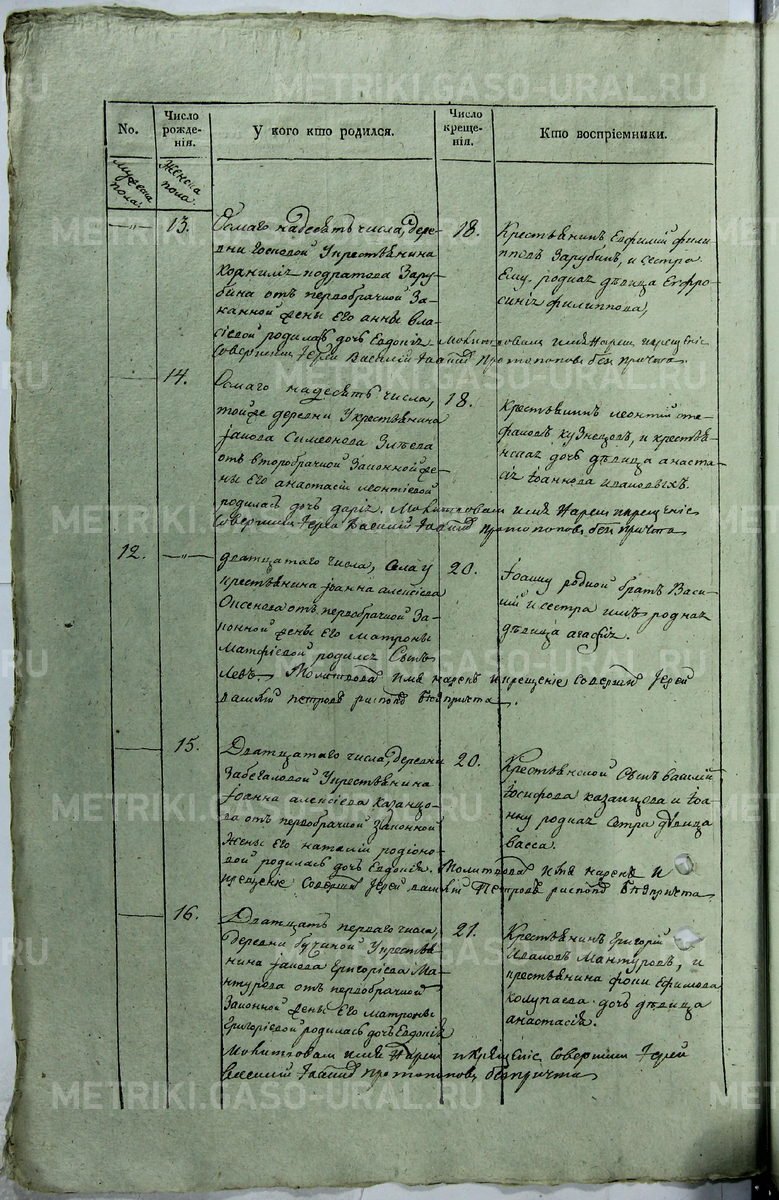 METRIKI.GASO-URAL.RU
No.
Число рожде- нія.
У кого кто родился.
Число креще- нія.
Кто воспріемники.
Мужеска пола.
Женска пола.
13.
Осмаго надесять числа, дере-
вни Госковой у крестьянина
Зару-
бина отъ первобрачной За-
конной жены его Анны Вла-
сіевой родилась дочь Евдокія. Молитвовалъ имя нарекъ и крещеніе
совершилъ Іерей Василій Протопоповъ безъ причта
18.
Крестьянинъ Евфимій Фили-
пповъ Зарубинъ, и сестра
Ему родная дѣвица Евфро-
синія Филиппова,
14.
Осмаго надесять числа,
тойже деревни у крестьянина
Іакова Симеонова
отъ второбрачной Законной же-
ны его Анастасіи Леонтіевой
родилась дочь Дарія. Молитвовалъ имя нарекъ и крещеніе
совершилъ Іерей Василій Протопоповъ безъ причта
18.
Крестьянинъ Леонтій Сте-
фановъ Кузнецовъ, и крестья-
нская дочь дѣвица Анаста-
сія Іоаннова Ивановыхъ.
12.
дватцатаго числа, Села у
крестьянина Іоанна Алексіева
отъ первобрачной За-
конной жены его Матроны
Матфіевой родился Сынъ
Левъ. Молитвова имя нарекъ и крещеніе совершилъ Іерей
Василій Петровъ безпричта.
20.
Іоанну родной братъ Васи-
лій и сестра имъ родная
дѣвица Агафія.
15.
Дватцатаго числа, деревни
Забегаловой у крестьянина
Іоанна Алексіева Казанцо-
ва отъ первобрачной Законной
Жены его Наталіи Родіоно-
вой родилась дочь Евдокія. Молитвова имя нарекъ и
крещеніе совершилъ Іерей Василій Петровъ безпричта
20.
Крестьянской Сынъ Василій
Іосифова Казанцова и Іоа-
нну родная Сетра дѣвица
Васса.
16.
Дватцать перваго числа,
Деревни Бучиной у крестья-
нина Іакова Григоріева Ма-
нтурова отъ первобрачной
Законной жены Его Матроны
Григоріевой родилась дочь Евдокія
Молитвовалъ имя нарекъ и крещеніе совершилъ Іерей
Василій Протопоповъ безпричта
21.
Крестьянинъ Григорій
Ивановъ Мантуровъ, и
крестьянина Фоки Ефимова
Колупаева дочь дѣвица
Анастасія.